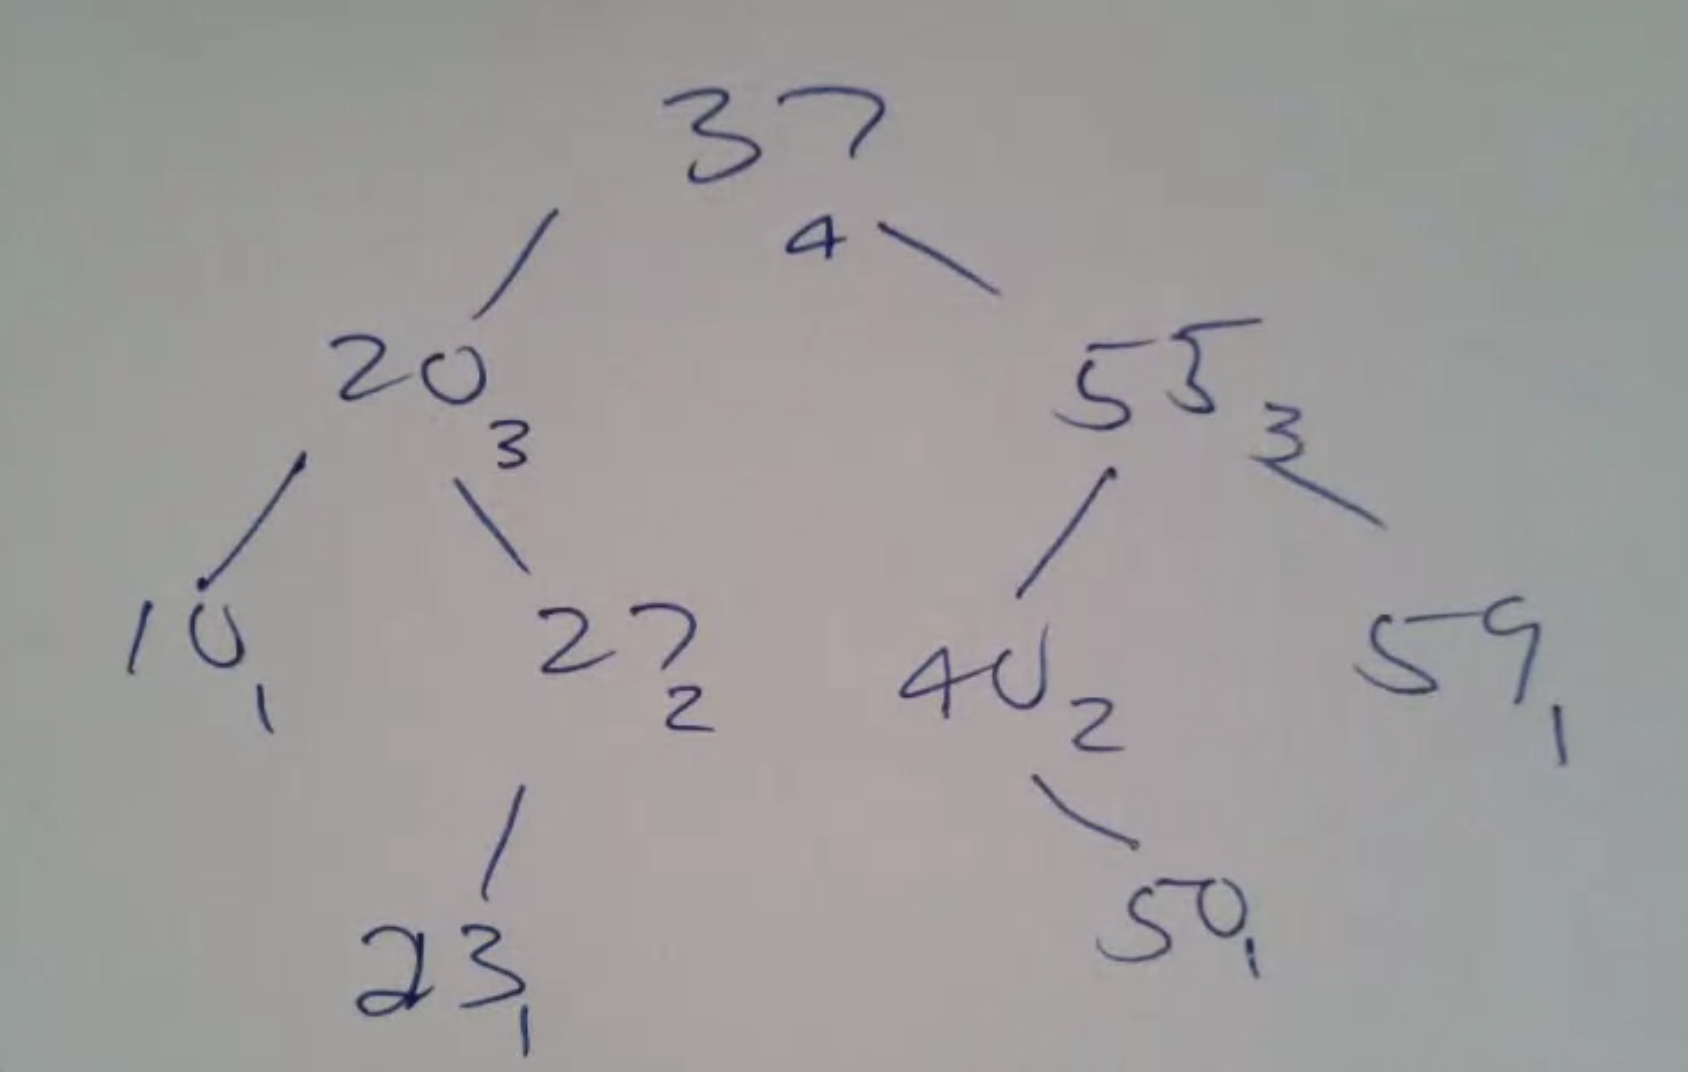 37
4
20
3
55
3
10
1
27
2
40
2
59
1
23
1
50
1